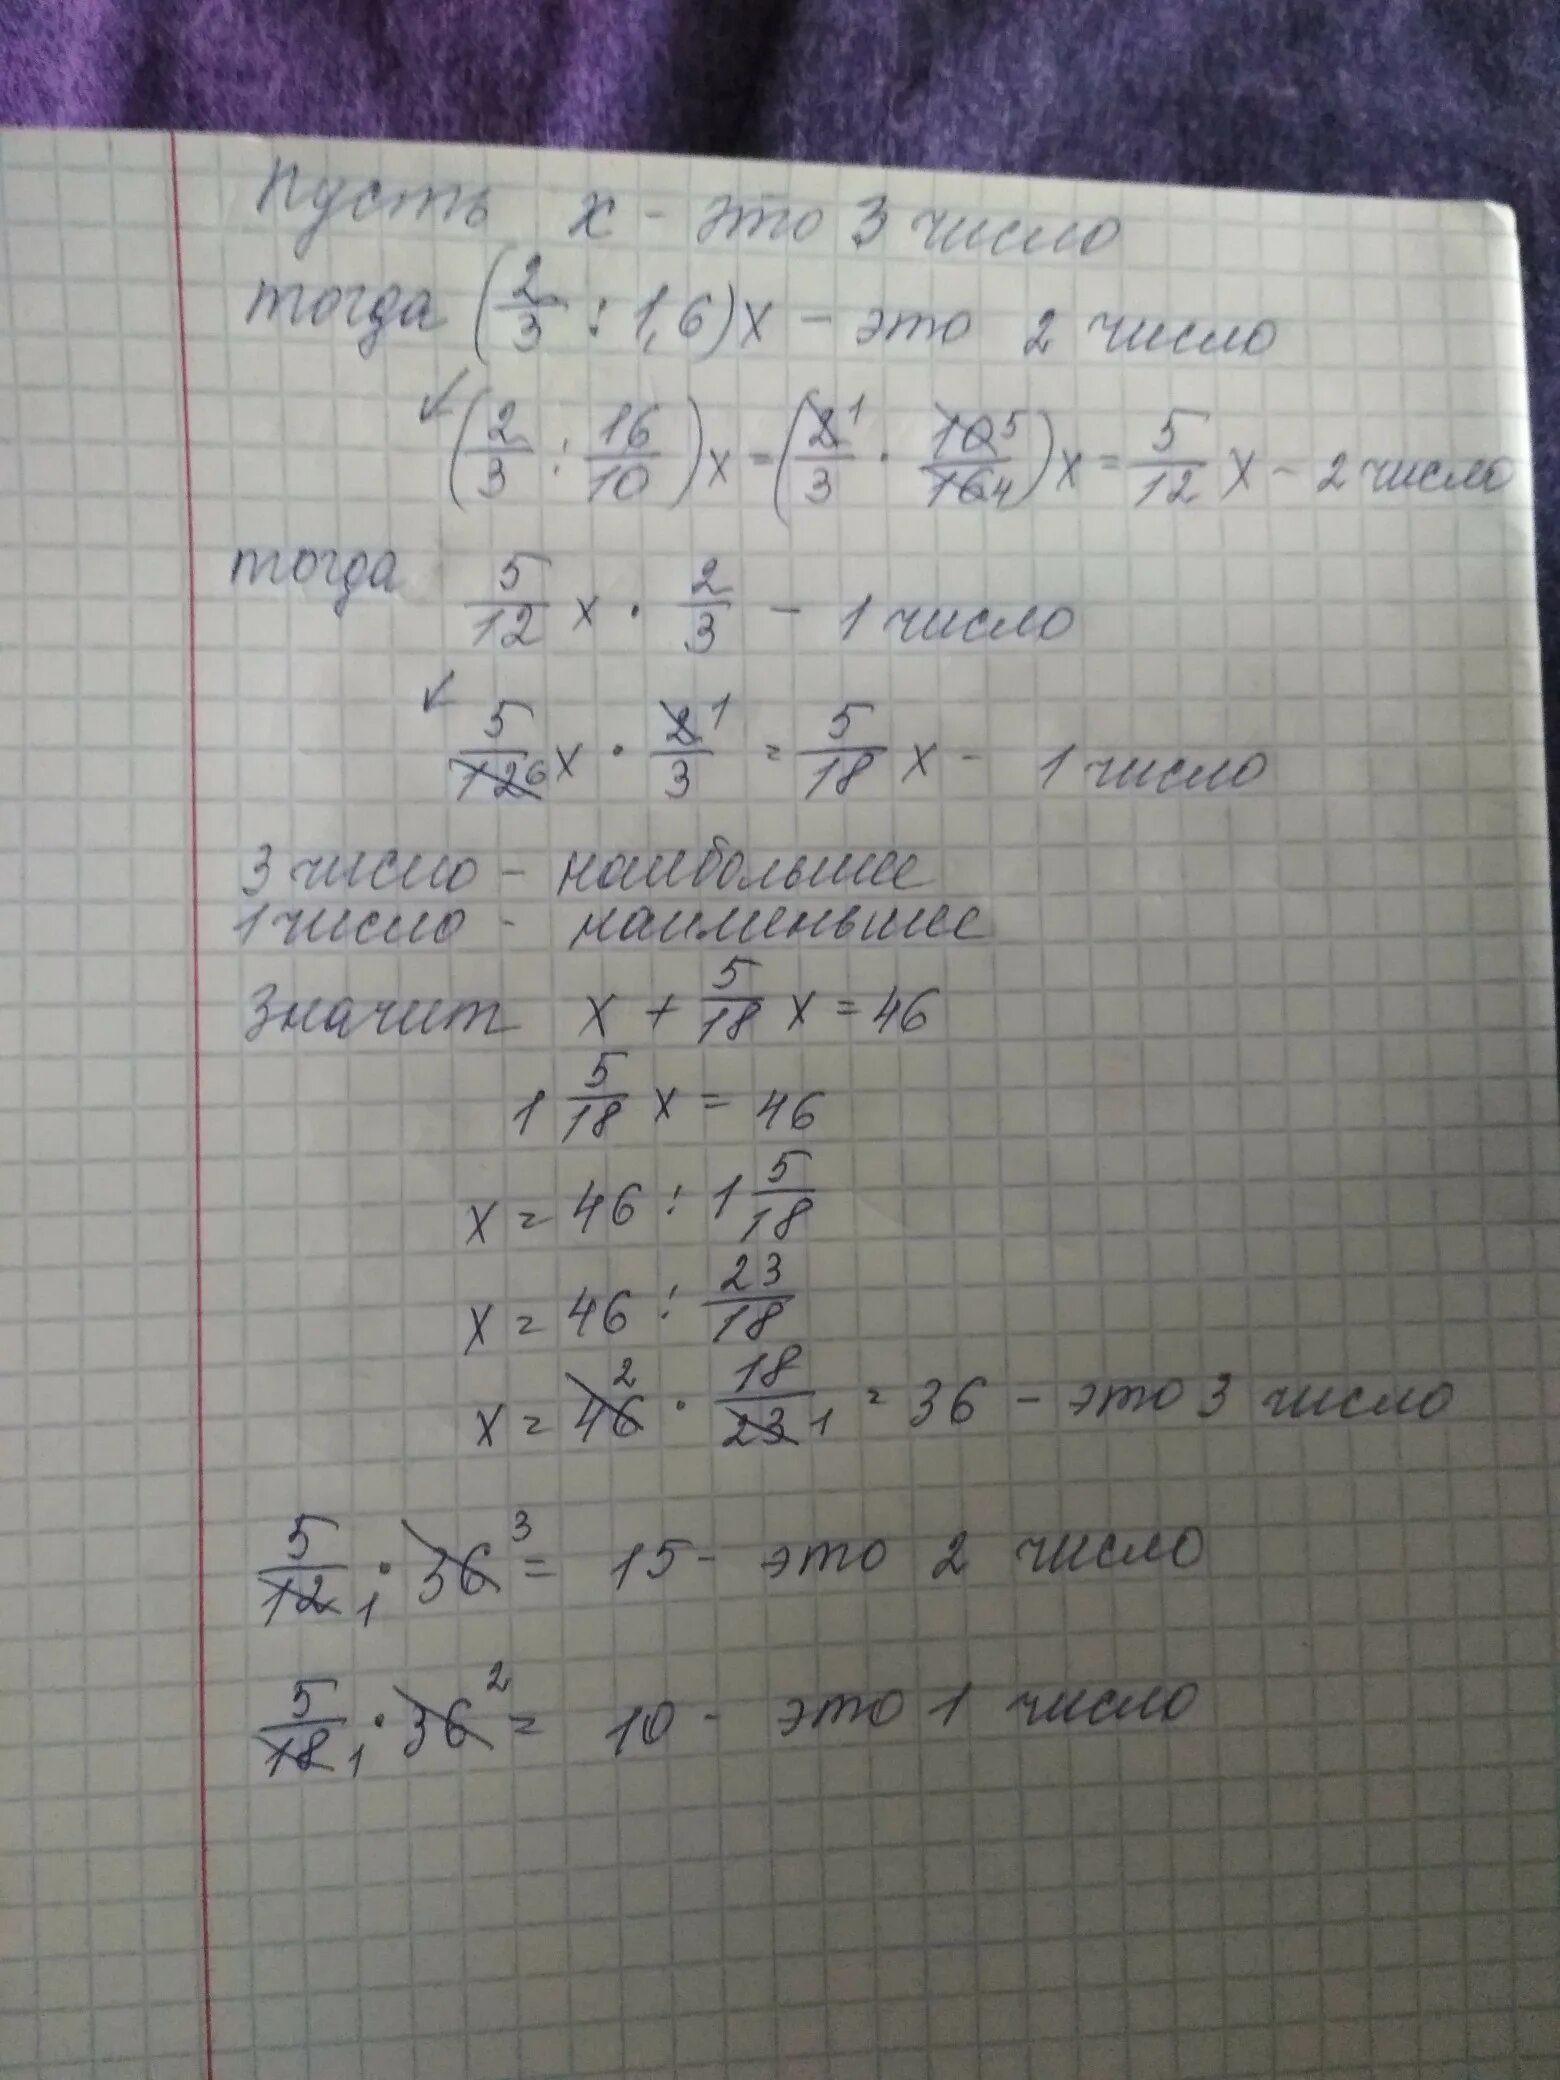 Пусть х - это 3 число
тогда (2/3 : 1,6)х - это 2 число
(2/3 : 16/10)х = (2 1/3 · 10 5/16 4)х = 5/12 х - 2 число
тогда 5/12 х · 2/3 - 1 число
5/12 6 х · 2 1/3 = 5/18 х - 1 число
3 число - наибольшее
1 число - наименьшее
Значит х + 5/18 х = 46
1 5/18 х = 46
х = 46 : 1 5/18
х = 46 : 23/18
х = 46 2 · 18/23 1 = 36 - это 3 число
5/12 1 · 36 3 = 15 - это 2 число
5/18 1 · 36 2 = 10 - это 1 число